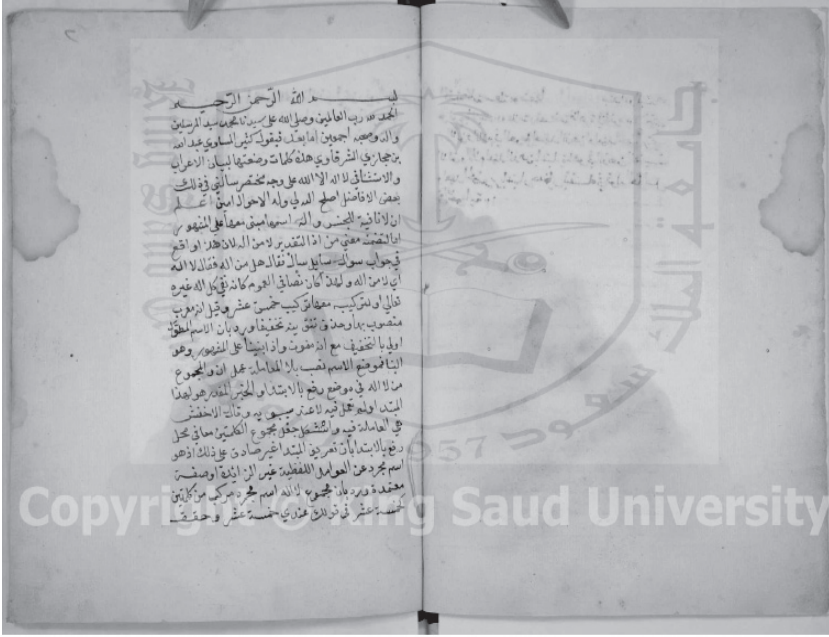 بسم الله الرحمن الرحيم
الحمد لله رب العالمين وصلى الله على سيدنا محمد سيد المرسلين
واله وصحبه اجمعين اما بعد فيقول كثير المساوي عبد الله
بن حجازي الشرقاوي هذه كلمات وضعتها لبيان الاعراب
والاستثنا في لا اله الا الله على وجه مختصر سالني في ذلك
بعض الافاضل اصلح الله لي وله الاحوال امين اعلم
ان لا نافية للجنس واله اسمها مبني معها على المشهور
اما لتضمنه معنى من اذ التقدير لا من اله لانه واقع
في جواب سوال سايل سال فقال هل من اله فقال لا اله
اي لا من اله ولهذا كان نصا في العموم كانه نفى كل اله غيره
تعالى او لتركيبه معها تركيب خمسة عشر وقيل انه معرب
منصوب بها وحذف تنوينه تخفيفا ورد بان الاسم المطول
اولى بالتخفيف مع انه منون واذا بنينا على المشهور وهو
البنا فموضع الاسم نصب بلا العاملة عمل ان والمجموع
من لا اله في موضع رفع بالابتدا والخبر المقدر هو لهذا
المبتدا ولم تعمل فيه لا عند سيبويه وقال الاخفش
هي العاملة فيه واستشكل جعل مجموع الكلمتين معا في محل
رفع بالابتدا بان تعريف المبتدا غير صادق على ذلك اذ هو
اسم مجرد عن العوامل اللفظية غير الزائدة او صفة
معتمدة ورد بان مجموع لا اله اسم مجرد مركب من كلمتين
كخمسة عشر في قولك عندي خمسة عشر
جامعة الملك سعود
King Saud University
1957
Copyright © King Saud University